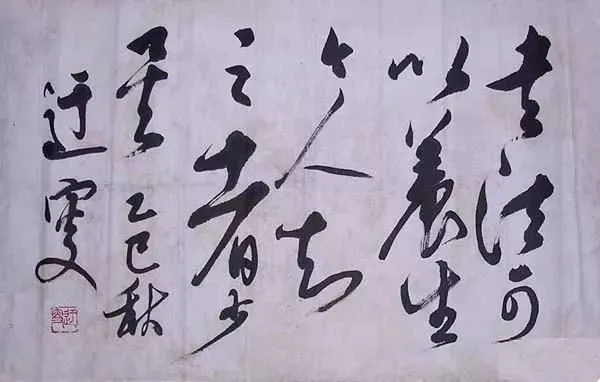 書法可
以養生
今人知
之者少
矣 乙巳秋
迂叟